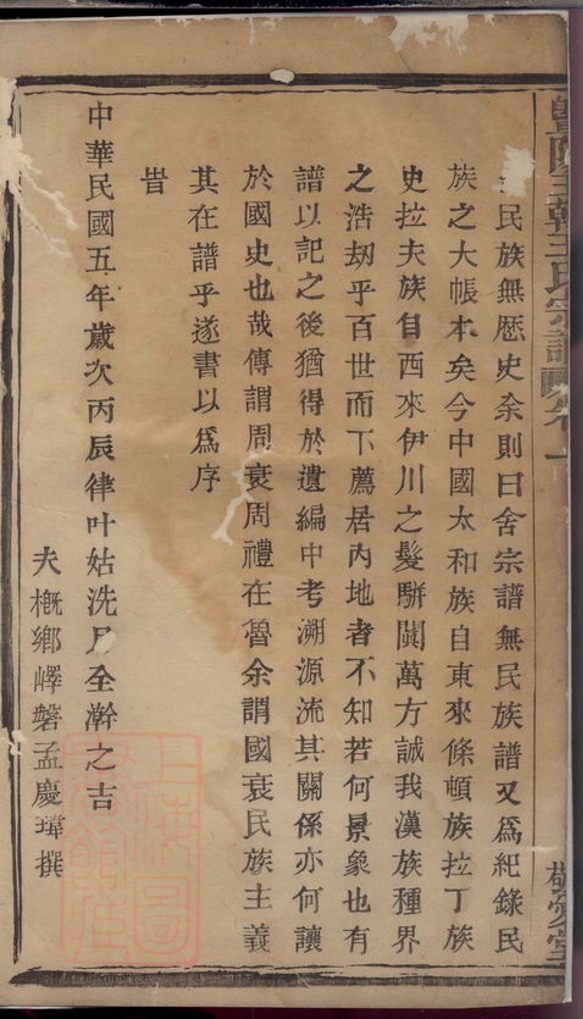 民族無歷史余則曰舍宗譜無民族譜又爲紀錄民
族之大帳本矣今中國太和族自東來條頓族拉丁族
史拉夫族自西來伊川之髮駢闐萬方誠我漢族種界
之浩劫乎百世而下薦居內地者不知若何景象也有
譜以記之後猶得於遺編中考溯源流其關係亦何讓
於國史也哉傳謂周衰周禮在魯余謂國衰民族主義
其在譜乎遂書以爲序
旹
中華民國五年歲次丙辰律叶姑洗月全澣之吉
夫槪鄉嶧磐孟慶瑋撰
王氏宗譜
敬愛堂
上海圖書館藏